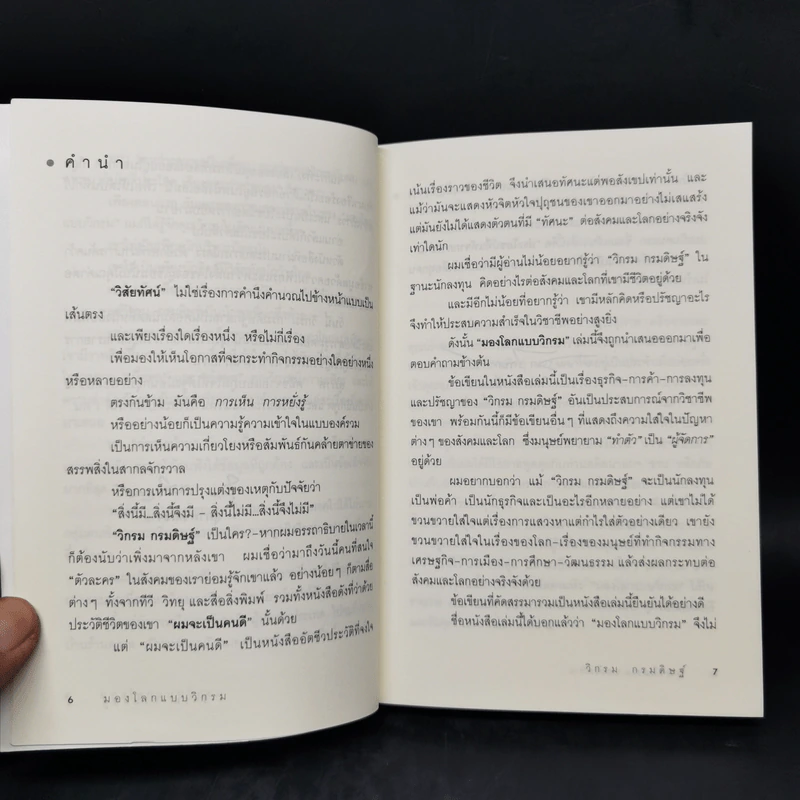 คำนำ
"วิสัยทัศน์" ไม่ใช่เรื่องการคำนึงคำนวณไปข้างหน้าแบบเป็น
เส้นตรง
และเพียงเรื่องใดเรื่องหนึ่ง หรือไม่กี่เรื่อง
เพื่อมองให้เห็นโอกาสที่จะกระทำกิจกรรมอย่างใดอย่างหนึ่ง
หรือหลายอย่าง
ตรงกันข้าม มันคือ การเห็น การหยั่งรู้
หรืออย่างน้อยก็เป็นความรู้ความเข้าใจในแบบองค์รวม
เป็นการเห็นความเกี่ยวโยงหรือสัมพันธ์กันคล้ายตาข่ายของ
สรรพสิ่งในสากลจักรวาล
หรือการเห็นการปรุงแต่งของเหตุกับปัจจัยว่า
"สิ่งนี้มี...สิ่งนี้จึงมี – สิ่งนี้ไม่มี...สิ่งนี้จึงไม่มี"
"วิกรม กรมดิษฐ์" เป็นใคร?–หากผมอรรถาธิบายในเวลานี้
ก็ต้องนับว่าเพิ่งมาจากหลังเขา ผมเชื่อว่ามาถึงวันนี้คนที่สนใจ
"ตัวละคร" ในสังคมของเราย่อมรู้จักเขาแล้ว อย่างน้อยๆ ก็ตามสื่อ
ต่างๆ ทั้งจากทีวี วิทยุ และสื่อสิ่งพิมพ์ รวมทั้งหนังสือดังที่ว่าด้วย
ประวัติชีวิตของเขา "ผมจะเป็นคนดี" นั้นด้วย
แต่ "ผมจะเป็นคนดี" เป็นหนังสืออัตชีวประวัติที่จงใจ
6 มองโลกแบบวิกรม
เน้นเรื่องราวของชีวิต จึงนำเสนอทัศนะแต่พอสังเขปเท่านั้น และ
แม้ว่ามันจะแสดงหัวจิตหัวใจปุถุชนของเขาออกมาอย่างไม่เสแสร้ง
แต่มันยังไม่ได้แสดงตัวตนที่มี "ทัศนะ" ต่อสังคมและโลกอย่างจริงจัง
เท่าใดนัก
ผมเชื่อว่ามีผู้อ่านไม่น้อยอยากรู้ว่า "วิกรม กรมดิษฐ์" ใน
ฐานะนักลงทุน คิดอย่างไรต่อสังคมและโลกที่เขามีชีวิตอยู่ด้วย
และมีอีกไม่น้อยที่อยากรู้ว่า เขามีหลักคิดหรือปรัชญาอะไร
จึงทำให้ประสบความสำเร็จในวิชาชีพอย่างสูงยิ่ง
ดังนั้น "มองโลกแบบวิกรม" เล่มนี้จึงถูกนำเสนอออกมาเพื่อ
ตอบคำถามข้างต้น
ข้อเขียนในหนังสือเล่มนี้เป็นเรื่องธุรกิจ–การค้า–การลงทุน
และปรัชญาของ "วิกรม กรมดิษฐ์" อันเป็นประสบการณ์จากวิชาชีพ
ของเขา พร้อมกันนี้ก็มีข้อเขียนอื่นๆ ที่แสดงถึงความใส่ใจในปัญหา
ต่างๆ ของสังคมและโลก ซึ่งมนุษย์พยายาม "ทำตัว" เป็น "ผู้จัดการ"
อยู่ด้วย
ผมอยากบอกว่า แม้ "วิกรม กรมดิษฐ์" จะเป็นนักลงทุน
เป็นพ่อค้า เป็นนักธุรกิจและเป็นอะไรอีกหลายอย่าง แต่เขาไม่ได้
ขวนขวายใส่ใจแต่เรื่องการแสวงหาแต่กำไรใส่ตัวอย่างเดียว เขายัง
ขวนขวายใส่ใจในเรื่องของโลก–เรื่องของมนุษย์ที่ทำกิจกรรมทาง
เศรษฐกิจ–การเมือง–การศึกษา–วัฒนธรรม แล้วส่งผลกระทบต่อ
สังคมและโลกอย่างจริงจังด้วย
ข้อเขียนที่คัดสรรมารวมเป็นหนังสือเล่มนี้ยืนยันได้อย่างดี
ชื่อหนังสือเล่มนี้ได้บอกแล้วว่า "มองโลกแบบวิกรม" จึงไม่
วิกรม กรมดิษฐ์ 7